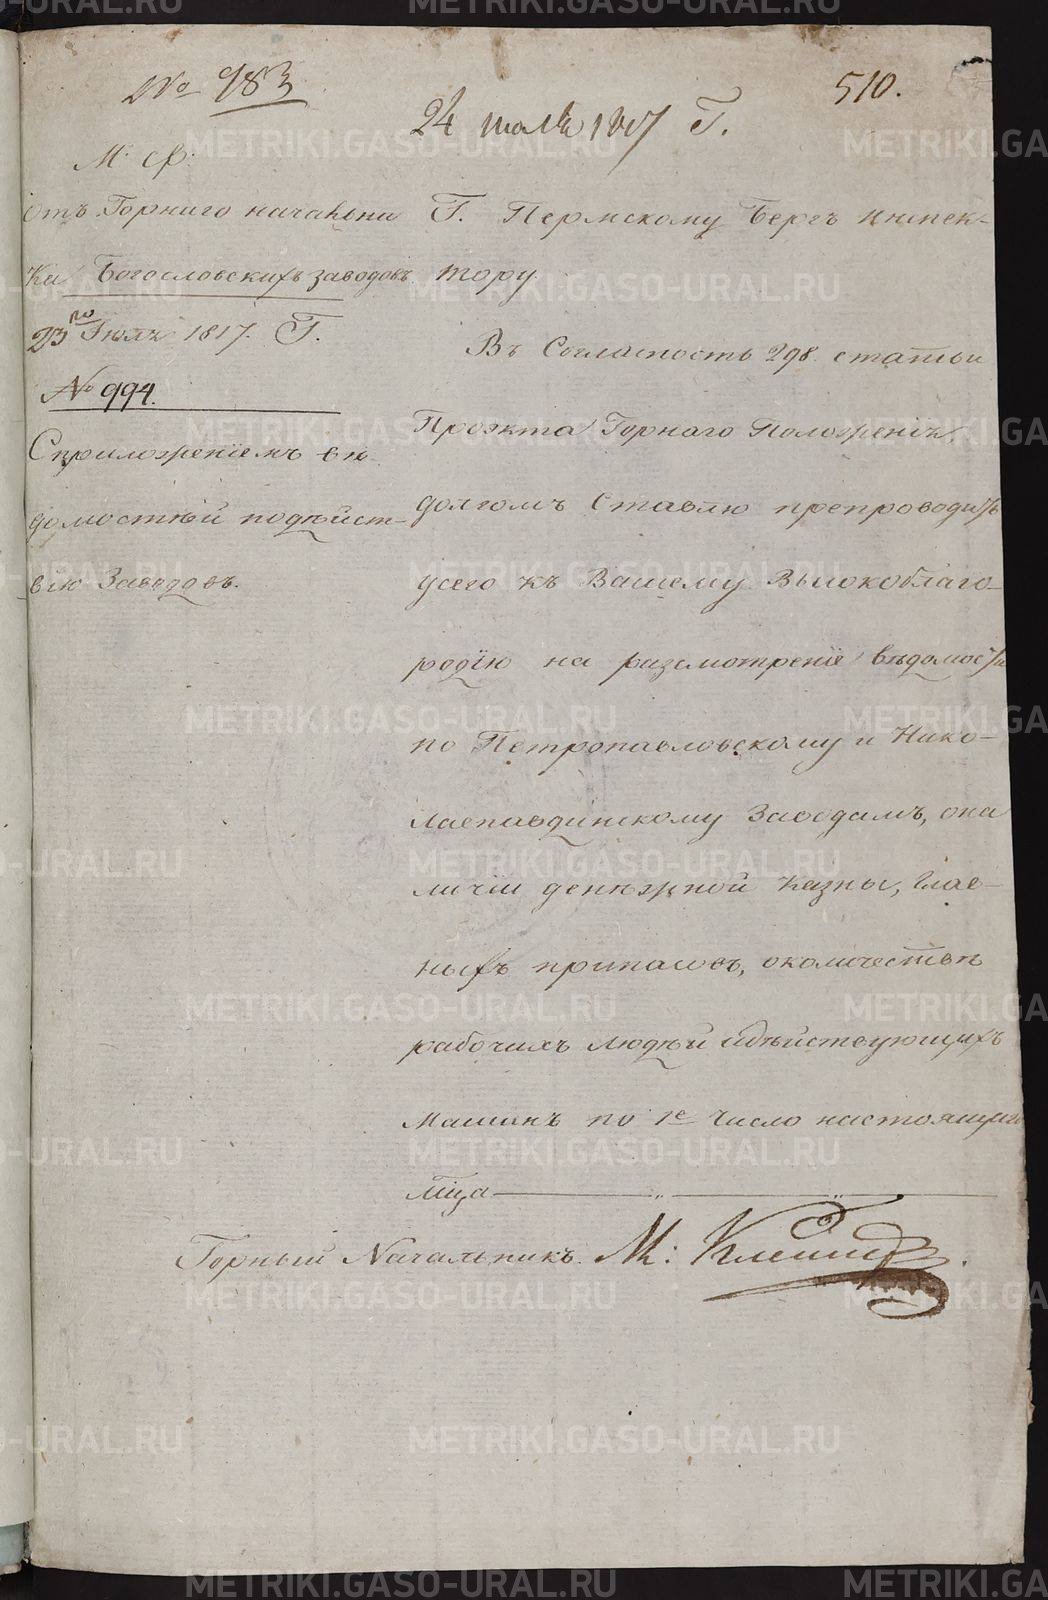 № 983
510.
24 июля 1817 Г.
М: Ф:
отъ Горнаго начални
ка Богословскихъ заводовъ
23го Июля 1817. Г.
№ 994.
С приложенiемъ вѣ
домостѣй подѣйст-
вiю Заводовъ.
Г. Пермскому Бергъ инспек-
тору
Въ Согласность 298 статьи
Проэкта Горнаго Положенiя,
долгомъ Ставлю препроводить
усего къ Вашему Высокоблаго-
родiю на разсмотренiе вѣдомости
по Петропавловскому и Нико-
лаепавдинскому Заводамъ, она
личiи денѣжной казны, глав-
ныхъ припасовъ, околичествѣ
рабочихъ людѣй идѣйствующихъ
Машинъ по 1е число настоящаго
мца
Горный Начальникъ. М:
METRIKI.GASO-URAL.RU